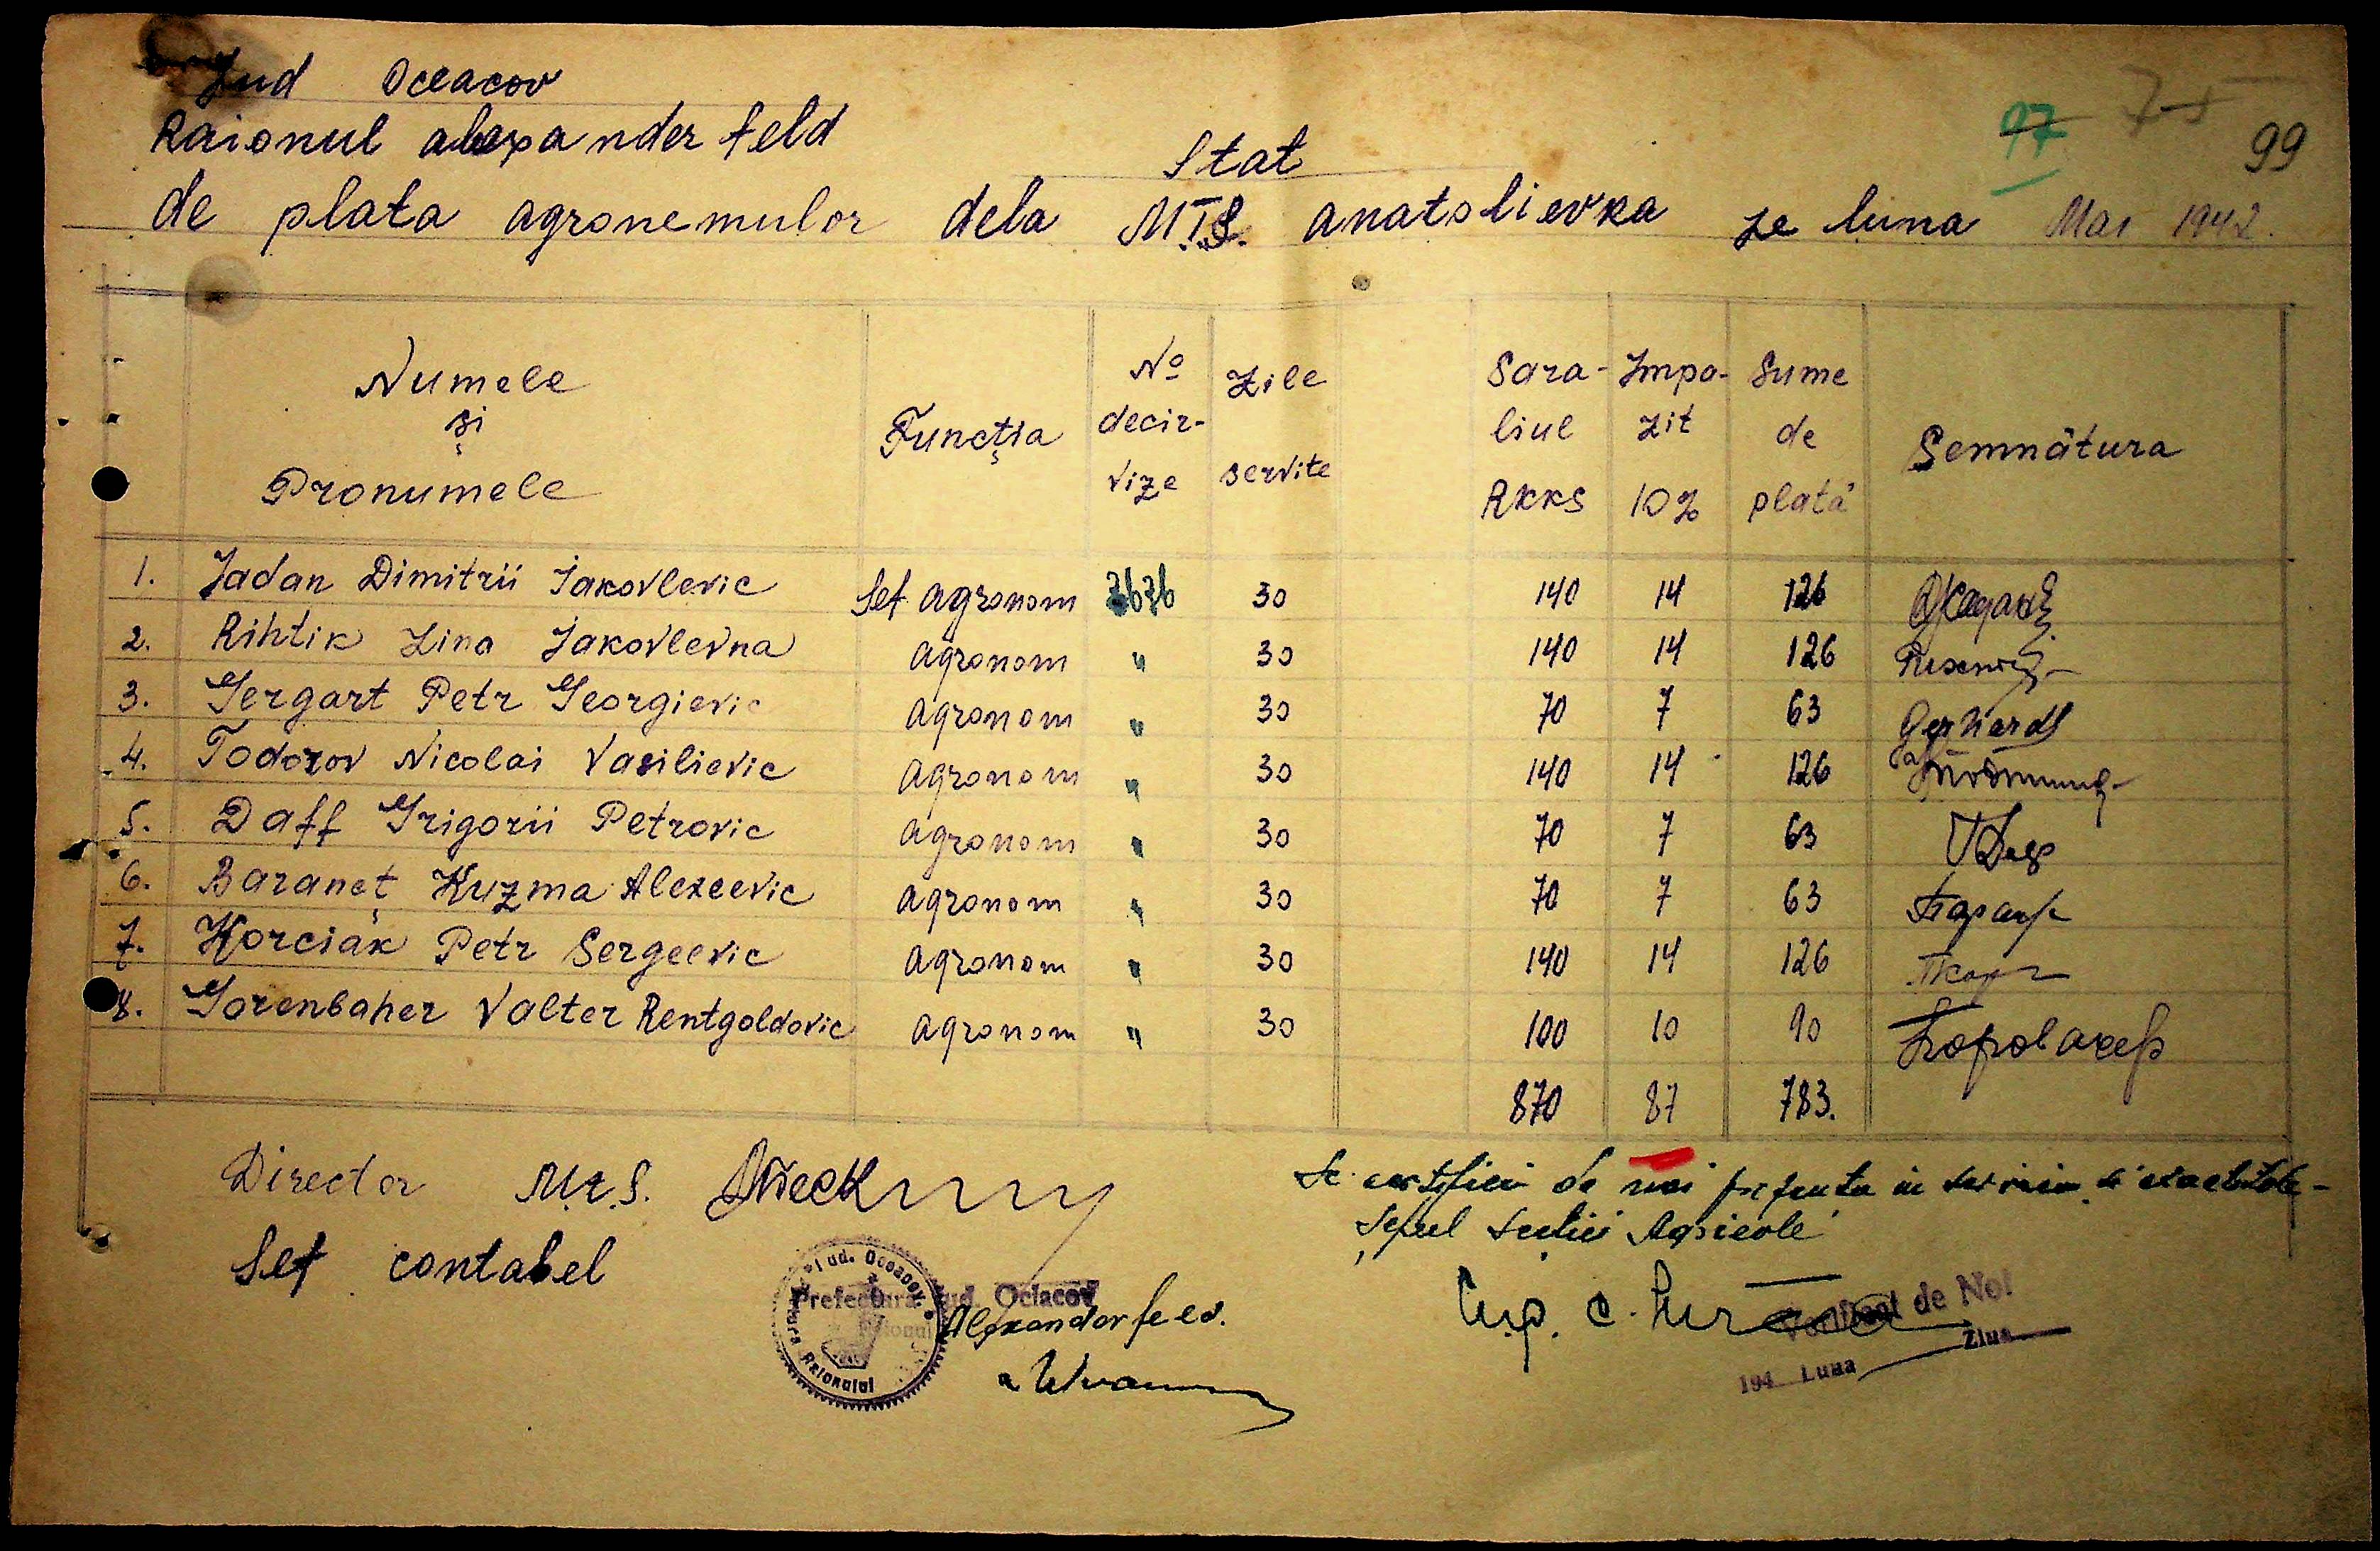 Jud Oceacov
Raionul alexanderfeld
97 99
Stat
de plata agronemulor dela M.T.S. anatolievka pe luna Mai 1942.
Numele și Pronumele Funcția No decir-vize Zile servite Sara-liul RKKS Impo-zit 10% Sume de plată Semnătura
1. Jadan Dimitrii Jakovlevic Sef agronom 3636 30 140 14 126
2. Rihtik Zina Jakovlevna agronom " 30 140 14 126
3. Gergart Petr Georgievic agronom " 30 70 7 63 Gerhardt
4. Todorov Nicolai Vasilievic agronom " 30 140 14 126
5. Daff Grigorii Petrovic agronom " 30 70 7 63
6. Baraneț Kuzma Alexeevic agronom " 30 70 7 63
7. Korciak Petr Sergeevic agronom " 30 140 14 126
8. Gorenbaher Valter Rentgoldovic agronom " 30 100 10 90
870 87 783.
Director M.T.S.
Se certifică de noi prezenta in serviciu si exactitate
Șeful Secției Agricole
Sef contabel
Prefectura Jud. Ociacov
Raionul Alexanderfeld.
Ing. C.
Verificat de Noi
194 Luna Ziua